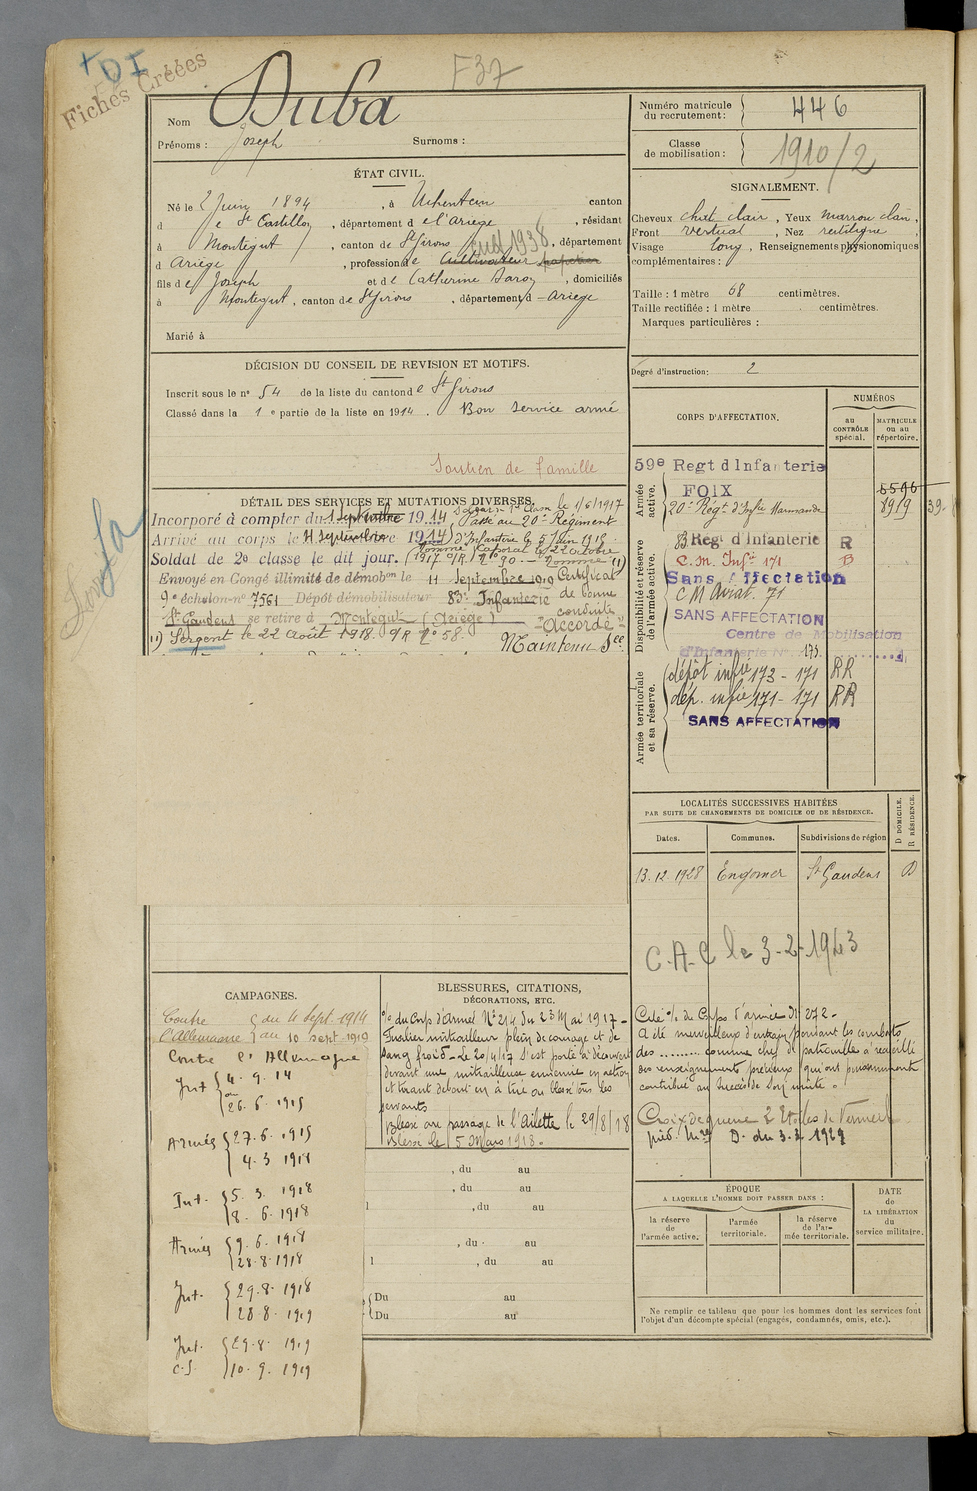 + DI
Fiches Créées
F37
Nom Duba
Prénoms : Joseph Surnoms :
Numéro matricule du recrutement : 446
Classe de mobilisation : 1910/2
ÉTAT CIVIL.
Né le 2 Juin 1894, à canton
d e St Castillon, département d e l'Ariège, résidant
à Montégut, canton de St Girons, département
d Ariège, profession de Cultivateur
1938
fils de Joseph et de Catherine, domiciliés
à Montégut, canton de St Girons, département d Ariège
Marié à
SIGNALEMENT.
Cheveux chat. clair, Yeux marron clair,
Front vertical, Nez rectiligne,
Visage long, Renseignements physionomiques
complémentaires :
Taille : 1 mètre 68 centimètres.
Taille rectifiée : 1 mètre centimètres.
Marques particulières :
Degré d'instruction : 2
DÉCISION DU CONSEIL DE REVISION ET MOTIFS.
Inscrit sous le n° 54 de la liste du canton de St Girons
Classé dans la 1e partie de la liste en 1914. Bon service armé
Soutien de famille
DÉTAIL DES SERVICES ET MUTATIONS DIVERSES.
Incorporé à compter du 1 Septembre 1914 Soldat 1e Classe le 1/6/1917
Passé au 20e Régiment
Arrivé au corps le 4 Septembre 1914 d'Infanterie le 5 Juin 1918.
Soldat de 2e classe le dit jour. Nommé Caporal le 22 octobre
1917 O/R N° 90. - Nommé (1)
Envoyé en Congé illimité de démobon le 11 Septembre 1919 Certificat
9e échelon n° 7561 Dépôt démobilisateur 83e Infanterie de bonne
St Gaudens se retire à Montégut (Ariège) conduite
"Accordé"
(1) Sergent le 22 Août 1918. O/R N° 58. Maintenu
CORPS D'AFFECTATION.
NUMÉROS
au CONTRÔLE spécial.
MATRICULE ou au répertoire.
Armée active.
59e Regt d'Infanterie
FOIX
5596
20e Régt d'Infie Marmande 8919 39-
Disponibilité et réserve de l'armée active.
83 Regt d'Infanterie R
C.M. Infie 171 B
Sans Affectation
CM Aviat. 71
SANS AFFECTATION
Centre de Mobilisation
d'Infanterie N° 173
Armée territoriale et sa réserve.
dépôt infie 173 - 171 RR
dép. infie 171 - 171 RR
SANS AFFECTATION
LOCALITÉS SUCCESSIVES HABITÉES
PAR SUITE DE CHANGEMENTS DE DOMICILE OU DE RÉSIDENCE.
Dates. Communes. Subdivisions de région
D DOMICILE.
R RÉSIDENCE.
13.12.1928 Engomer St Gaudens D
C.A.C le 3-2-1943
CAMPAGNES.
Contre l'Allemagne du 4 Sept. 1914
au 10 sept. 1919
Contre l'Allemagne
Int 4. 9. 14
au
26. 6. 1915
Armées 27.6. 1915
4. 3 1918
Int. 5. 3. 1918
8. 6. 1918
Armées 9. 6. 1918
28.8.1918
Int. 29.8. 1918
28.8. 1919
Int. 29.8. 1919
C.S. 10. 9. 1919
BLESSURES, CITATIONS,
DÉCORATIONS, ETC.
O/. du Corps d'Armée N° 214 du 23 Mai 1917 -
Fusilier mitrailleur plein de courage et de
Sang froid - Le 20/4/17 s'est porté à découvert
devant une mitrailleuse ennemie en action
et tirant debout en a tué ou blessé tous les
servants
Blessé au passage de l'Ailette le 29/8/18
Blessé le 5 Mars 1918.
Cité O/. du Corps d'armée N° 272 -
A été merveilleux d'entrain pendant les combats
des ......... comme chef de patrouille a recueilli
des renseignements précieux qui ont puissamment
contribué au succès de son unité.
Croix de guerre 2 Etoiles de Vermeil
, du au
, du au
, du au
, du au
, du au
Du au
Du au
ÉPOQUE
A LAQUELLE L'HOMME DOIT PASSER DANS :
la réserve de l'armée active.
l'armée territoriale.
la réserve de l'armée territoriale.
DATE
de
LA LIBÉRATION
du
service militaire.
Ne remplir ce tableau que pour les hommes dont les services font
l'objet d'un décompte spécial (engagés, condamnés, omis, etc.).